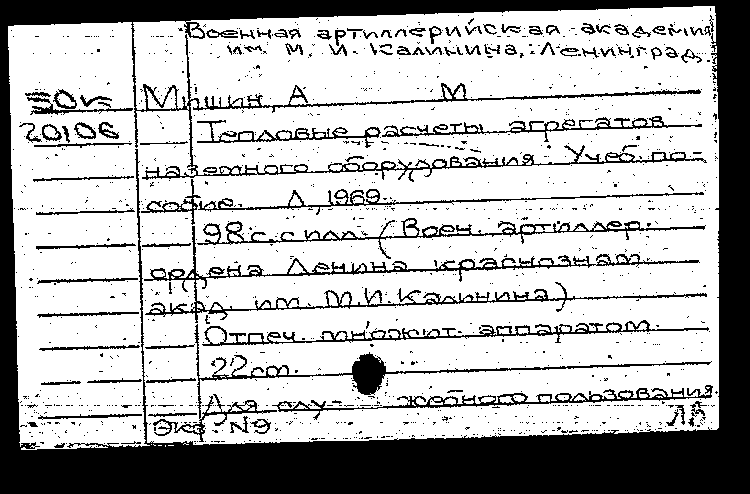 Военная артиллерийская академия
им. М. И. Калинина, Ленинград.
Мишин, А М
20106 Тепловые расчеты агрегатов
наземного оборудования. Учеб. по-
собие. Л., 1969.
98 с. с илл. (Воен. артиллер.
ордена Ленина краснознам.
акад. им. М.И. Калинина)
Отпеч. множит. аппаратом.
22 см.
Для слу- жебного пользования.
Экз. №9. ЛВ